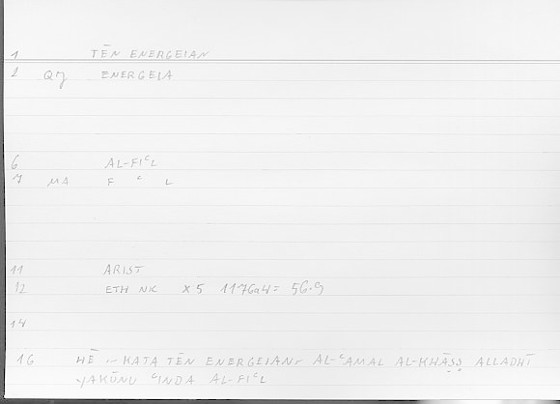 1 TĒN ENERGEIAN
2 QM ENERGEIA
6 AL-FIʿL
7 MA F ʿ L
11 ARIST
12 ETH NIC X 5 1176a4 = 56.9
14
16 HĒ -- KATA TĒN ENERGEIAN- AL-ʿAMAL AL-KHĀṢṢ ALLADHĪ
YAKŪNU ʿINDA AL-FIʿL